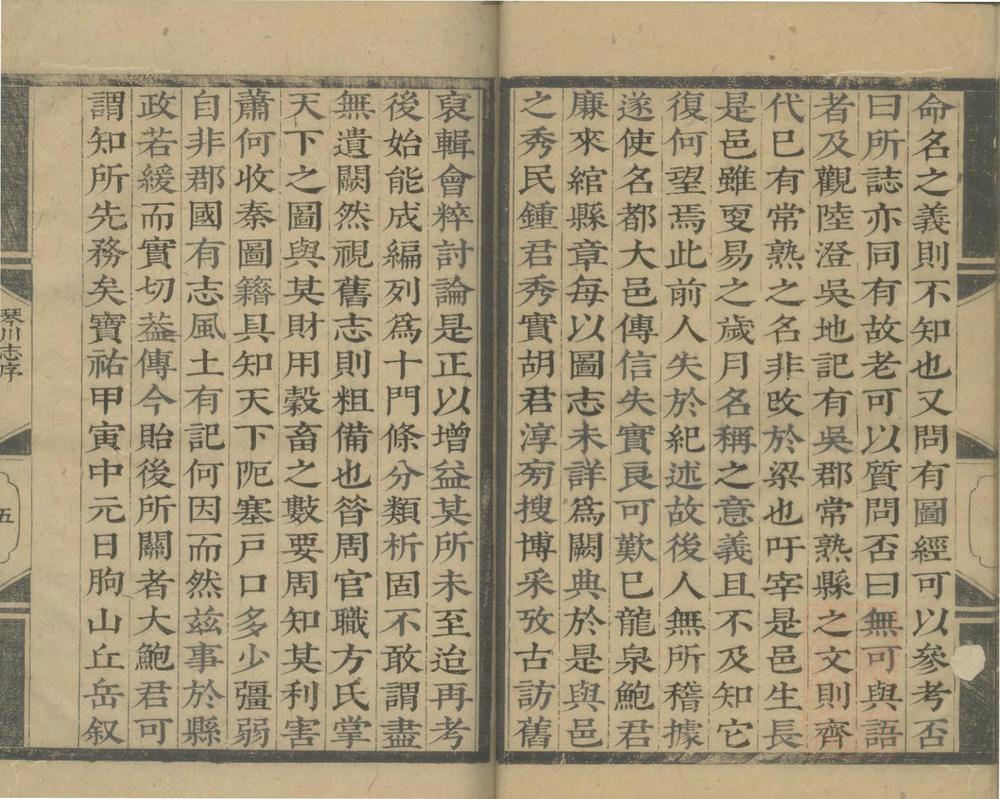 命名之義則不知也又問有圖經可以參考否
曰所誌亦同有故老可以質問否曰無可與語
者及觀陸澄吳地記有吳郡常熟縣之文則齊
代已有常熟之名非改於梁也吁宰是邑生長
是邑雖更易之歲月名稱之意義且不及知它
復何望焉此前人失於紀述故後人無所稽據
遂使名都大邑傳信失實良可歎已龍泉鮑君
廉來綰縣章每以圖志未詳爲闕典於是與邑
之秀民鍾君秀實胡君淳旁搜博采攷古訪舊
裒輯會粹討論是正以增益其所未至迨再考
後始能成編列爲十門條分類析固不敢謂盡
無遺闕然視舊志則粗備也昝周官職方氏掌
天下之圖與其財用穀畜之數要周知其利害
蕭何收秦圖籍具知天下阨塞戸口多少彊弱
自非郡國有志風土有記何因而然兹事於縣
政若緩而實切葢傳今貽後所關者大鮑君可
謂知所先務矣寶祐甲寅中元日朐山丘岳叙
琴川志序
五